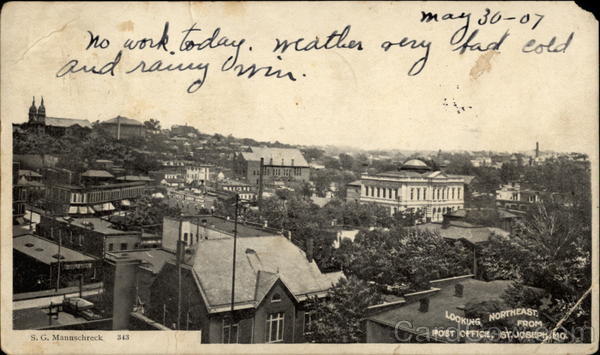 may 30-07
No work today. weather very bad cold
and rainy Win.
LOOKING NORTHEAST.
FROM
POST OFFICE, ST. JOSEPH, MO.
S. G. MANNSCHRECK 343